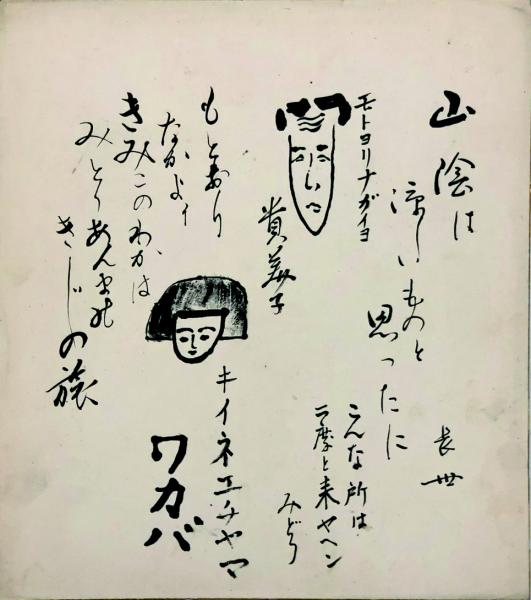 山陰は
涼しいものと
思ったに
長世
こんな所は
二度と来ヤヘン
みどり
モトヨリナガイヨ
貴美子
もとおり
なかよイ
きみこのわかは
みとりあんまの
きじの旅
キイネエチヤマ
ワカバ